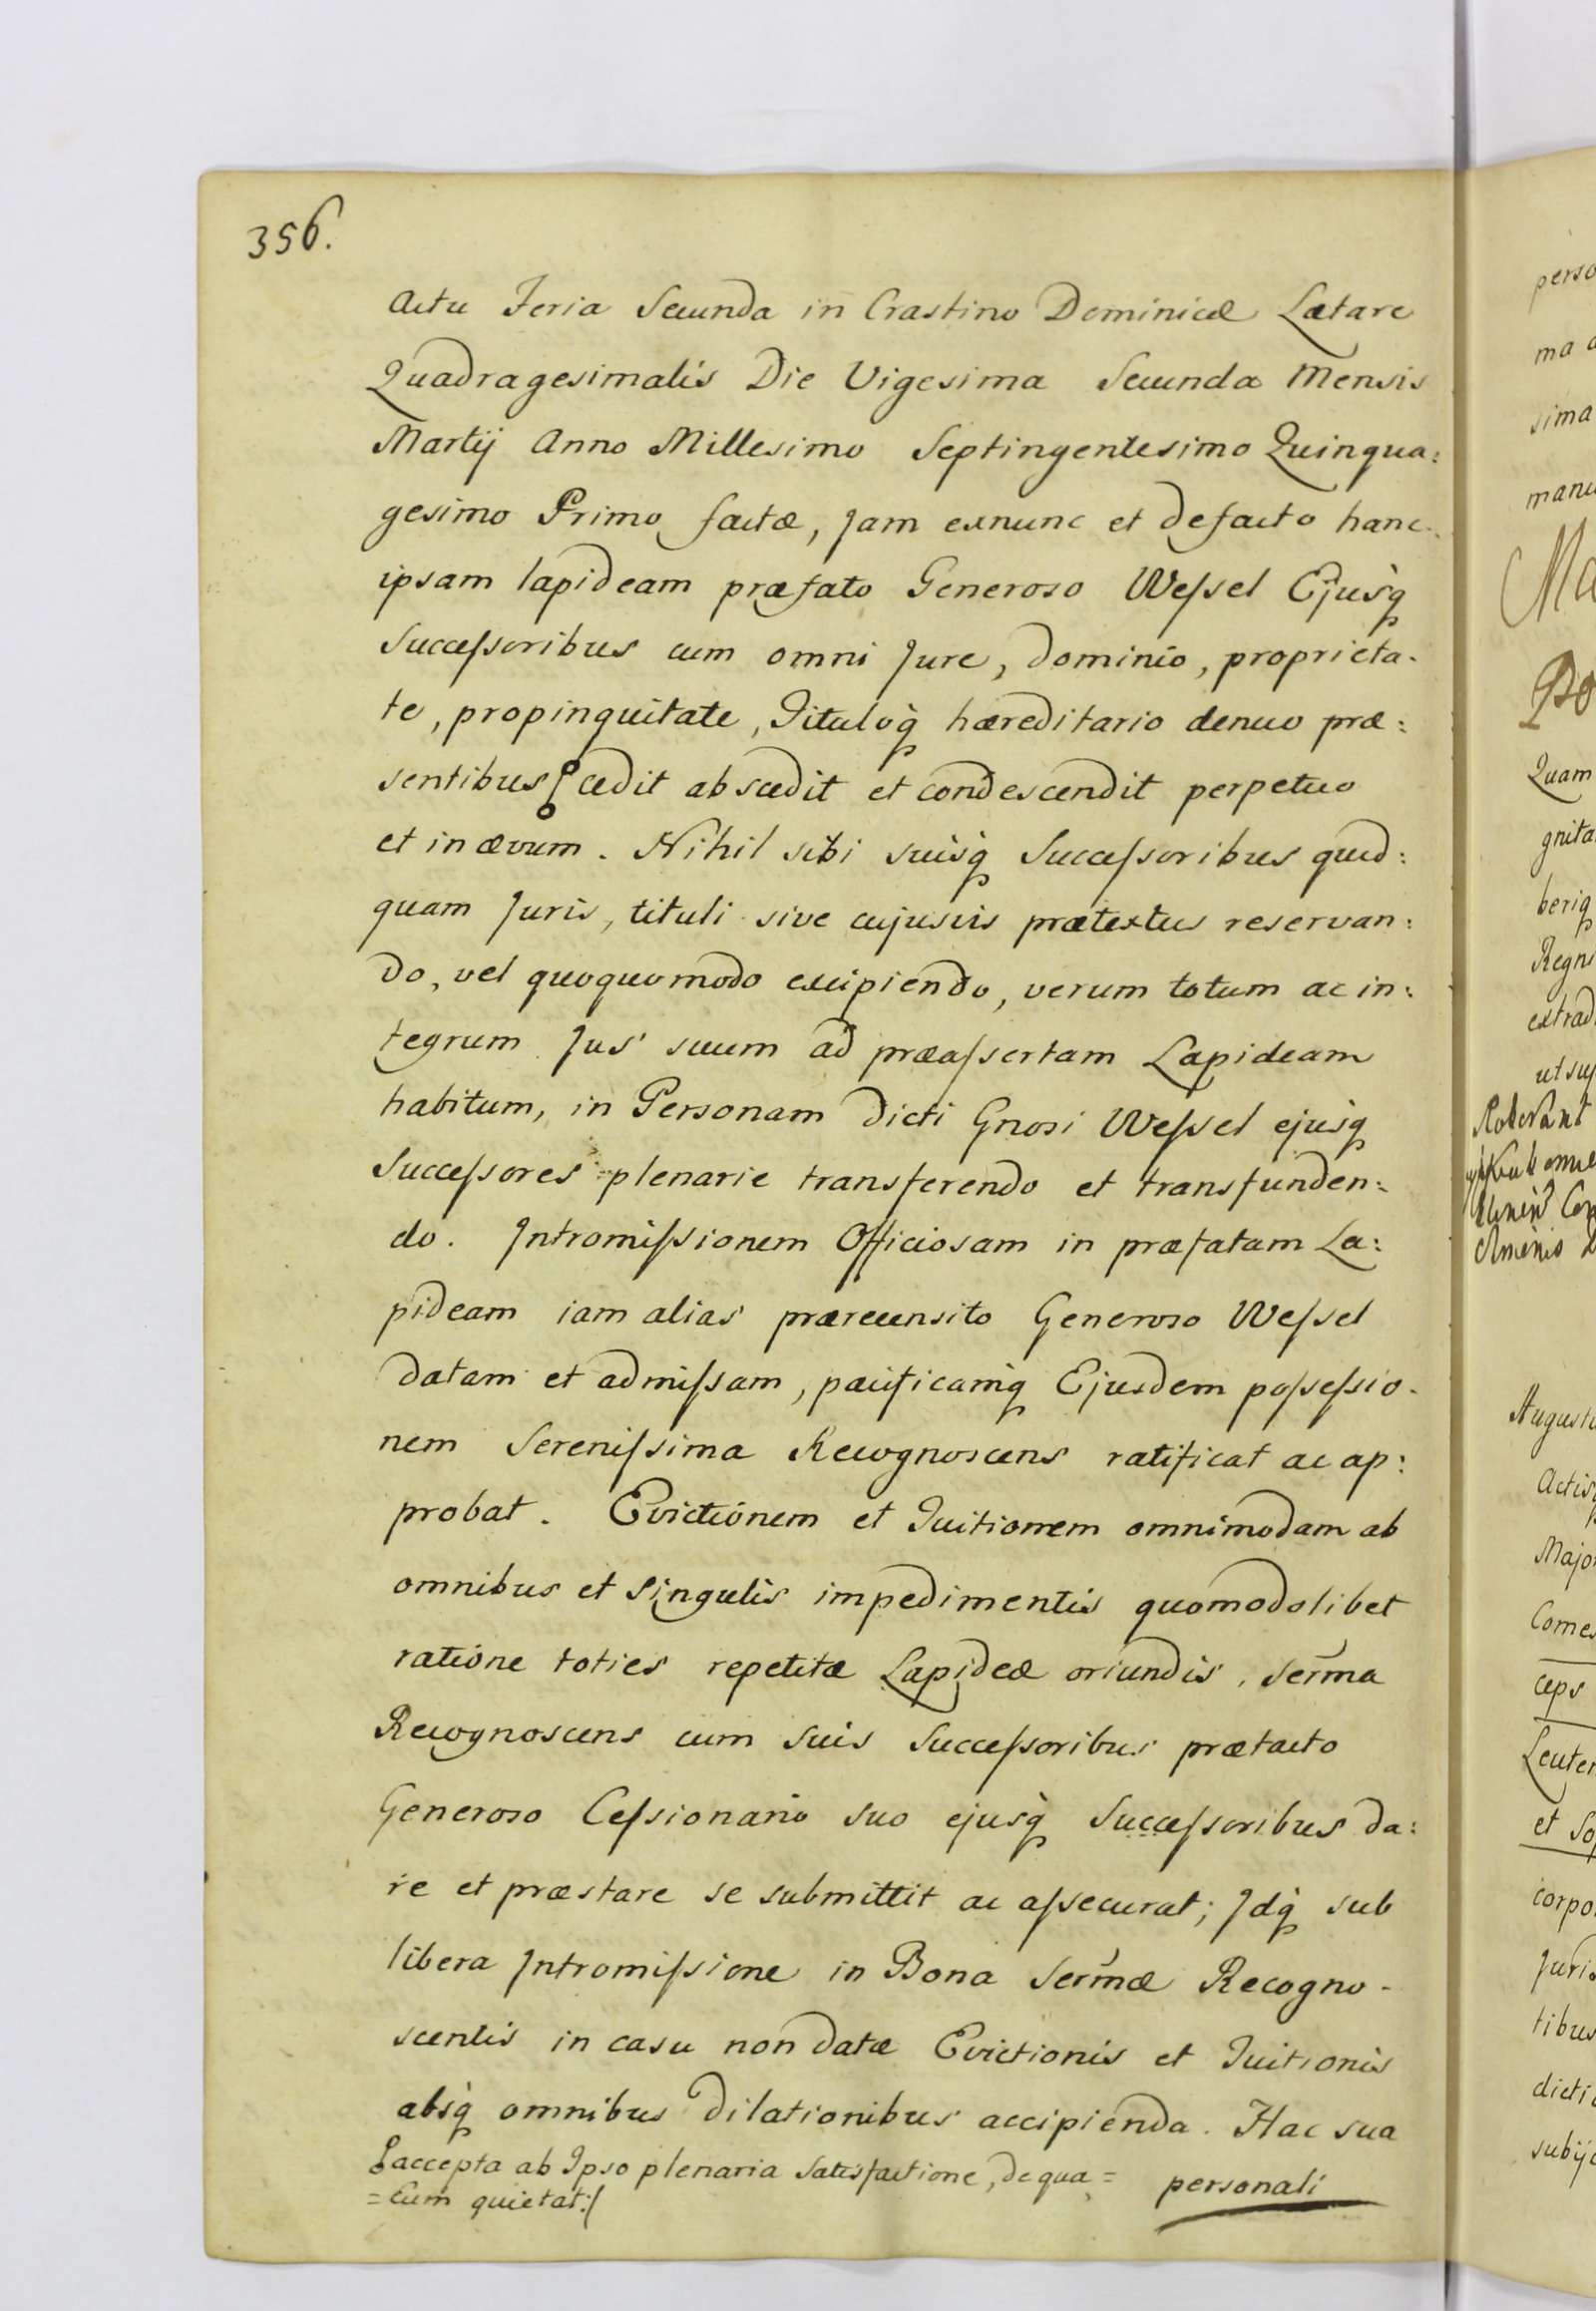 356.
Actu Feria Secunda in Crastino Dominicæ Lætare
Quadragesimalis Die Vigesima Secunda Mensis
Martij Anno Millesimo Septingentesimo Quinqua:
gesimo Primo factæ, Jam exnunc et defacto hanc
ipsam lapideam præfato Generoso Weſsel Ejusq̀
Succeſsoribus cum omni Jure, dominio, proprieta-
te, propinquitate, Tituloq̀ hæreditario denuo præ:
sentibus cedit abscedit et condescendit perpetuo
et in ævum. Nihil sibi suisq̀ Succeſsoribus quid:
quam Juris, tituli sive cujusvis prætextus reservan:
do, vel quoquomodo excipiendo, verum totum ac in:
tegrum Jus suum ad præaſsertam Lapideam
habitum, in Personam dicti Gnosi Weſsel ejusq̀
Succeſsores plenarie transferendo et transfunden:
do. Intromiſsionem Officiosam in præfatam La:
pideam iam alias prærecensito Generoso Weſsel
datam et admiſsam, pacificamq̀ Ejusdem poſseſsio-
nem Sereniſsima Recognoscens ratificat ac ap:
probat. Evictionem et Tuitionem omnimodam ab
omnibus et singulis impedimentis quomodolibet
ratione toties repetitæ Lapideæ oriundis, Serma
Recognoscens cum suis Succeſsoribus prætacto
Generoso Ceſsionario suo ejusq̀ Succeſsoribus da:
re et præstare se submittit ac aſsecurat; Idq̀ sub
libera Intromiſsione in Bona Sermæ Recogno-
scentis in casu non datæ Evictionis et Tuitionis
absq̀ omnibus dilationibus accipienda. Hac sua
accepta ab Ipso plenaria Satisfactione, de qua =
= Eum quietat:/
personali
perso
ma
sima
manu
Ma
Po
Quam
gnita
beriq
Regni
extrad
ut su
Augustu
Actis
Major
Comes
ceps
Leuten
et So
corpo
Juris
tibus
dicti
subij